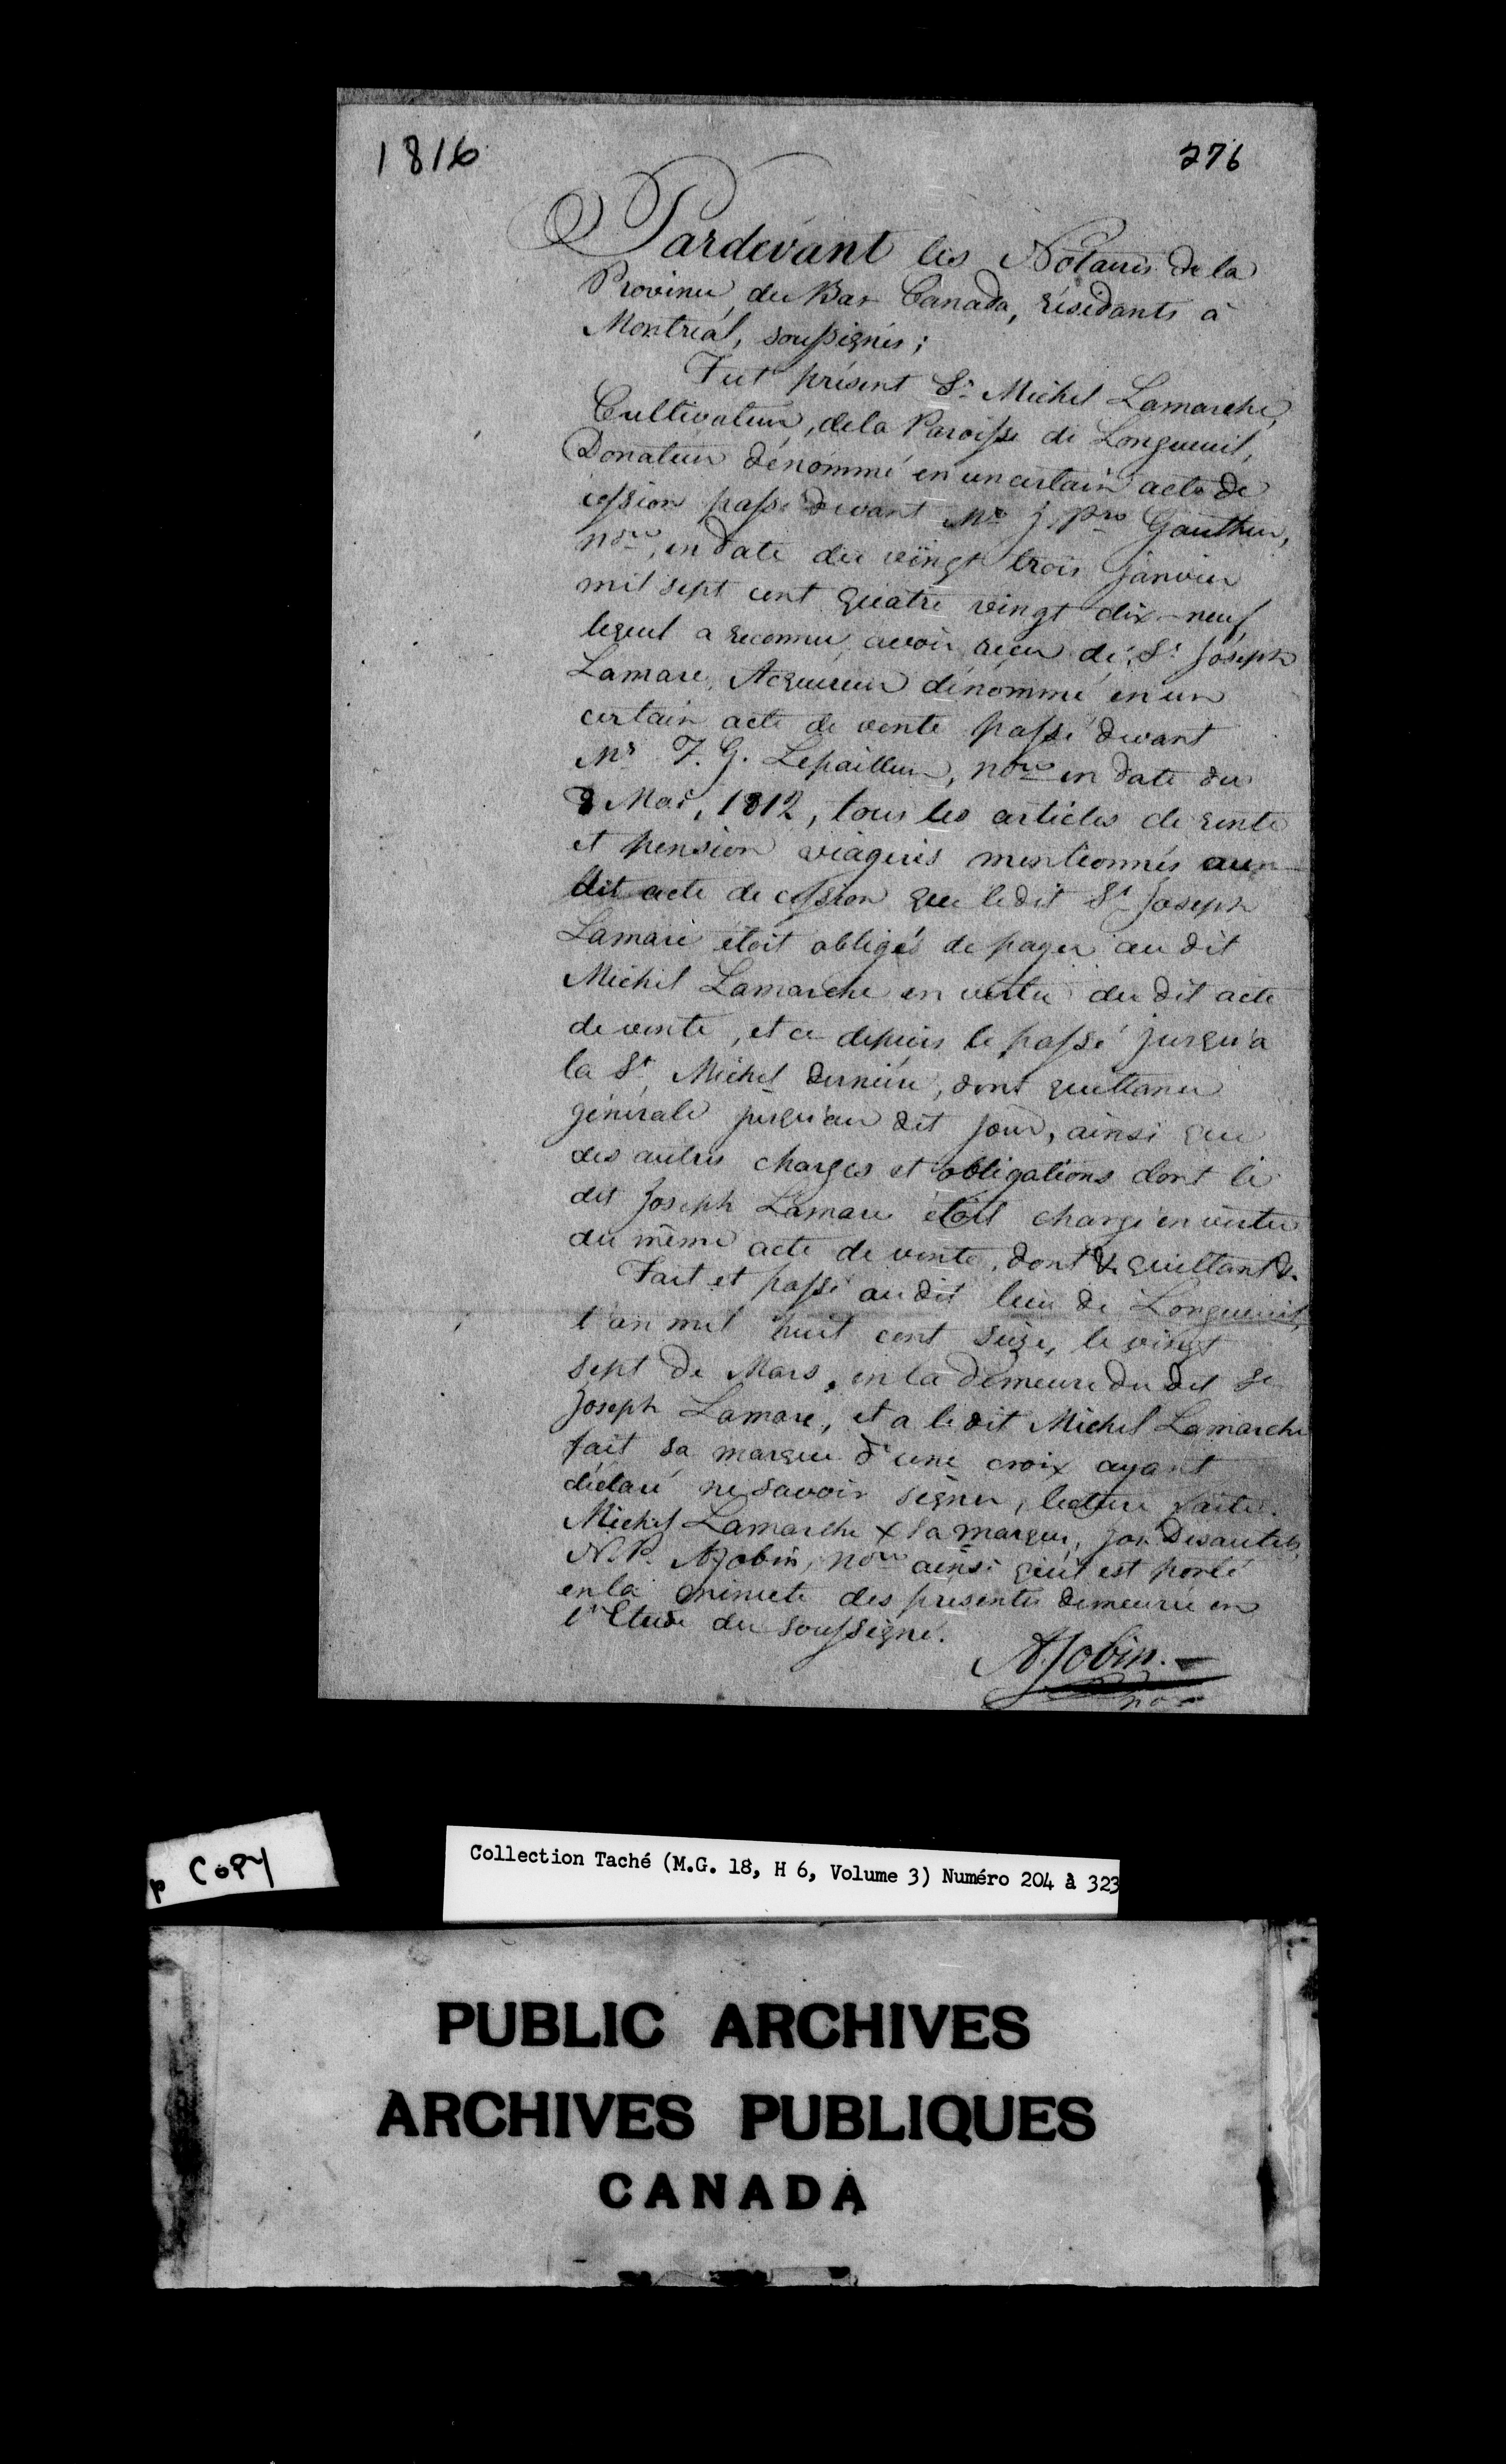 1816
276
Pardevant les Notaires de la
Province du Bas Canada, résidants à
Montréal, soussignés;
Fut présent Sr. Michel Lamarche,
Cultivateur, de la Paroisse de Longueuil,
Donateur dénommé en un certain acte de
cession passé devant Mr. J. Pre Gauthier,
nore, en date du vingt trois janvier
mil sept cent quatre vingt dix-neuf,
lequel a reconnu avoir reçu de Sr. Joseph
Lamare, Acquereur dénommé en un
certain acte de vente passé devant
Mr. F. G. Lepailleur, nore en date du
8 Mai, 1812, tous les articles de rente
et pension viageres mentionnés au
dit acte de cession que le dit Sr. Joseph
Lamare étoit obligés de payer au dit
Michel Lamarche en vertu du dit acte
de vente, et ce depuis le passé jusqu'à
la St. Michel derniere, dont quittance
générale jusqu'au dit jour, ainsi que
des autres charges et obligations dont le
dit Joseph Lamare étoit chargé en vertu
du même acte de vente, dont &c quittant &c
Fait et passé au dit lieu de Longueuil,
l'an mil huit cent seize, le vingt
sept de Mars, en la demeure du dit Sr
Joseph Lamare, et a le dit Michel Lamarche
fait sa marque d'une croix ayant
déclaré ne savoir signer, lecture faite.
Michel Lamarche X sa marque, Jos. Desautels,
N.P. A. Jobin, nore ainsi qu'il est porté
en la minute des présentes demeurée en
l'Etude du soussigné.
A. Jobin.
nore
COPY
Collection Taché (M.G. 18, H 6, Volume 3) Numéro 204 à 323
PUBLIC ARCHIVES
ARCHIVES PUBLIQUES
CANADA